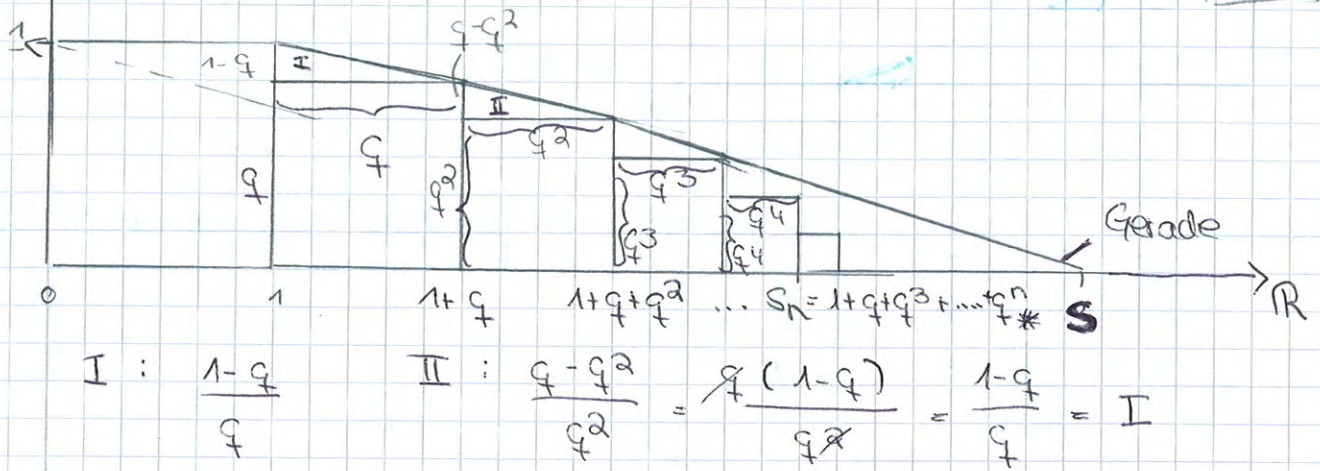 q-q²
1
1-q I
II
q q²
q q² q³ q⁴
q³ q⁴
Gerade
0 1 1+q 1+q+q² ... Sn = 1+q+q³+....+qⁿ * S ℝ
I : (1-q)/q II : (q-q²)/q² = q(1-q)/q² = (1-q)/q = I